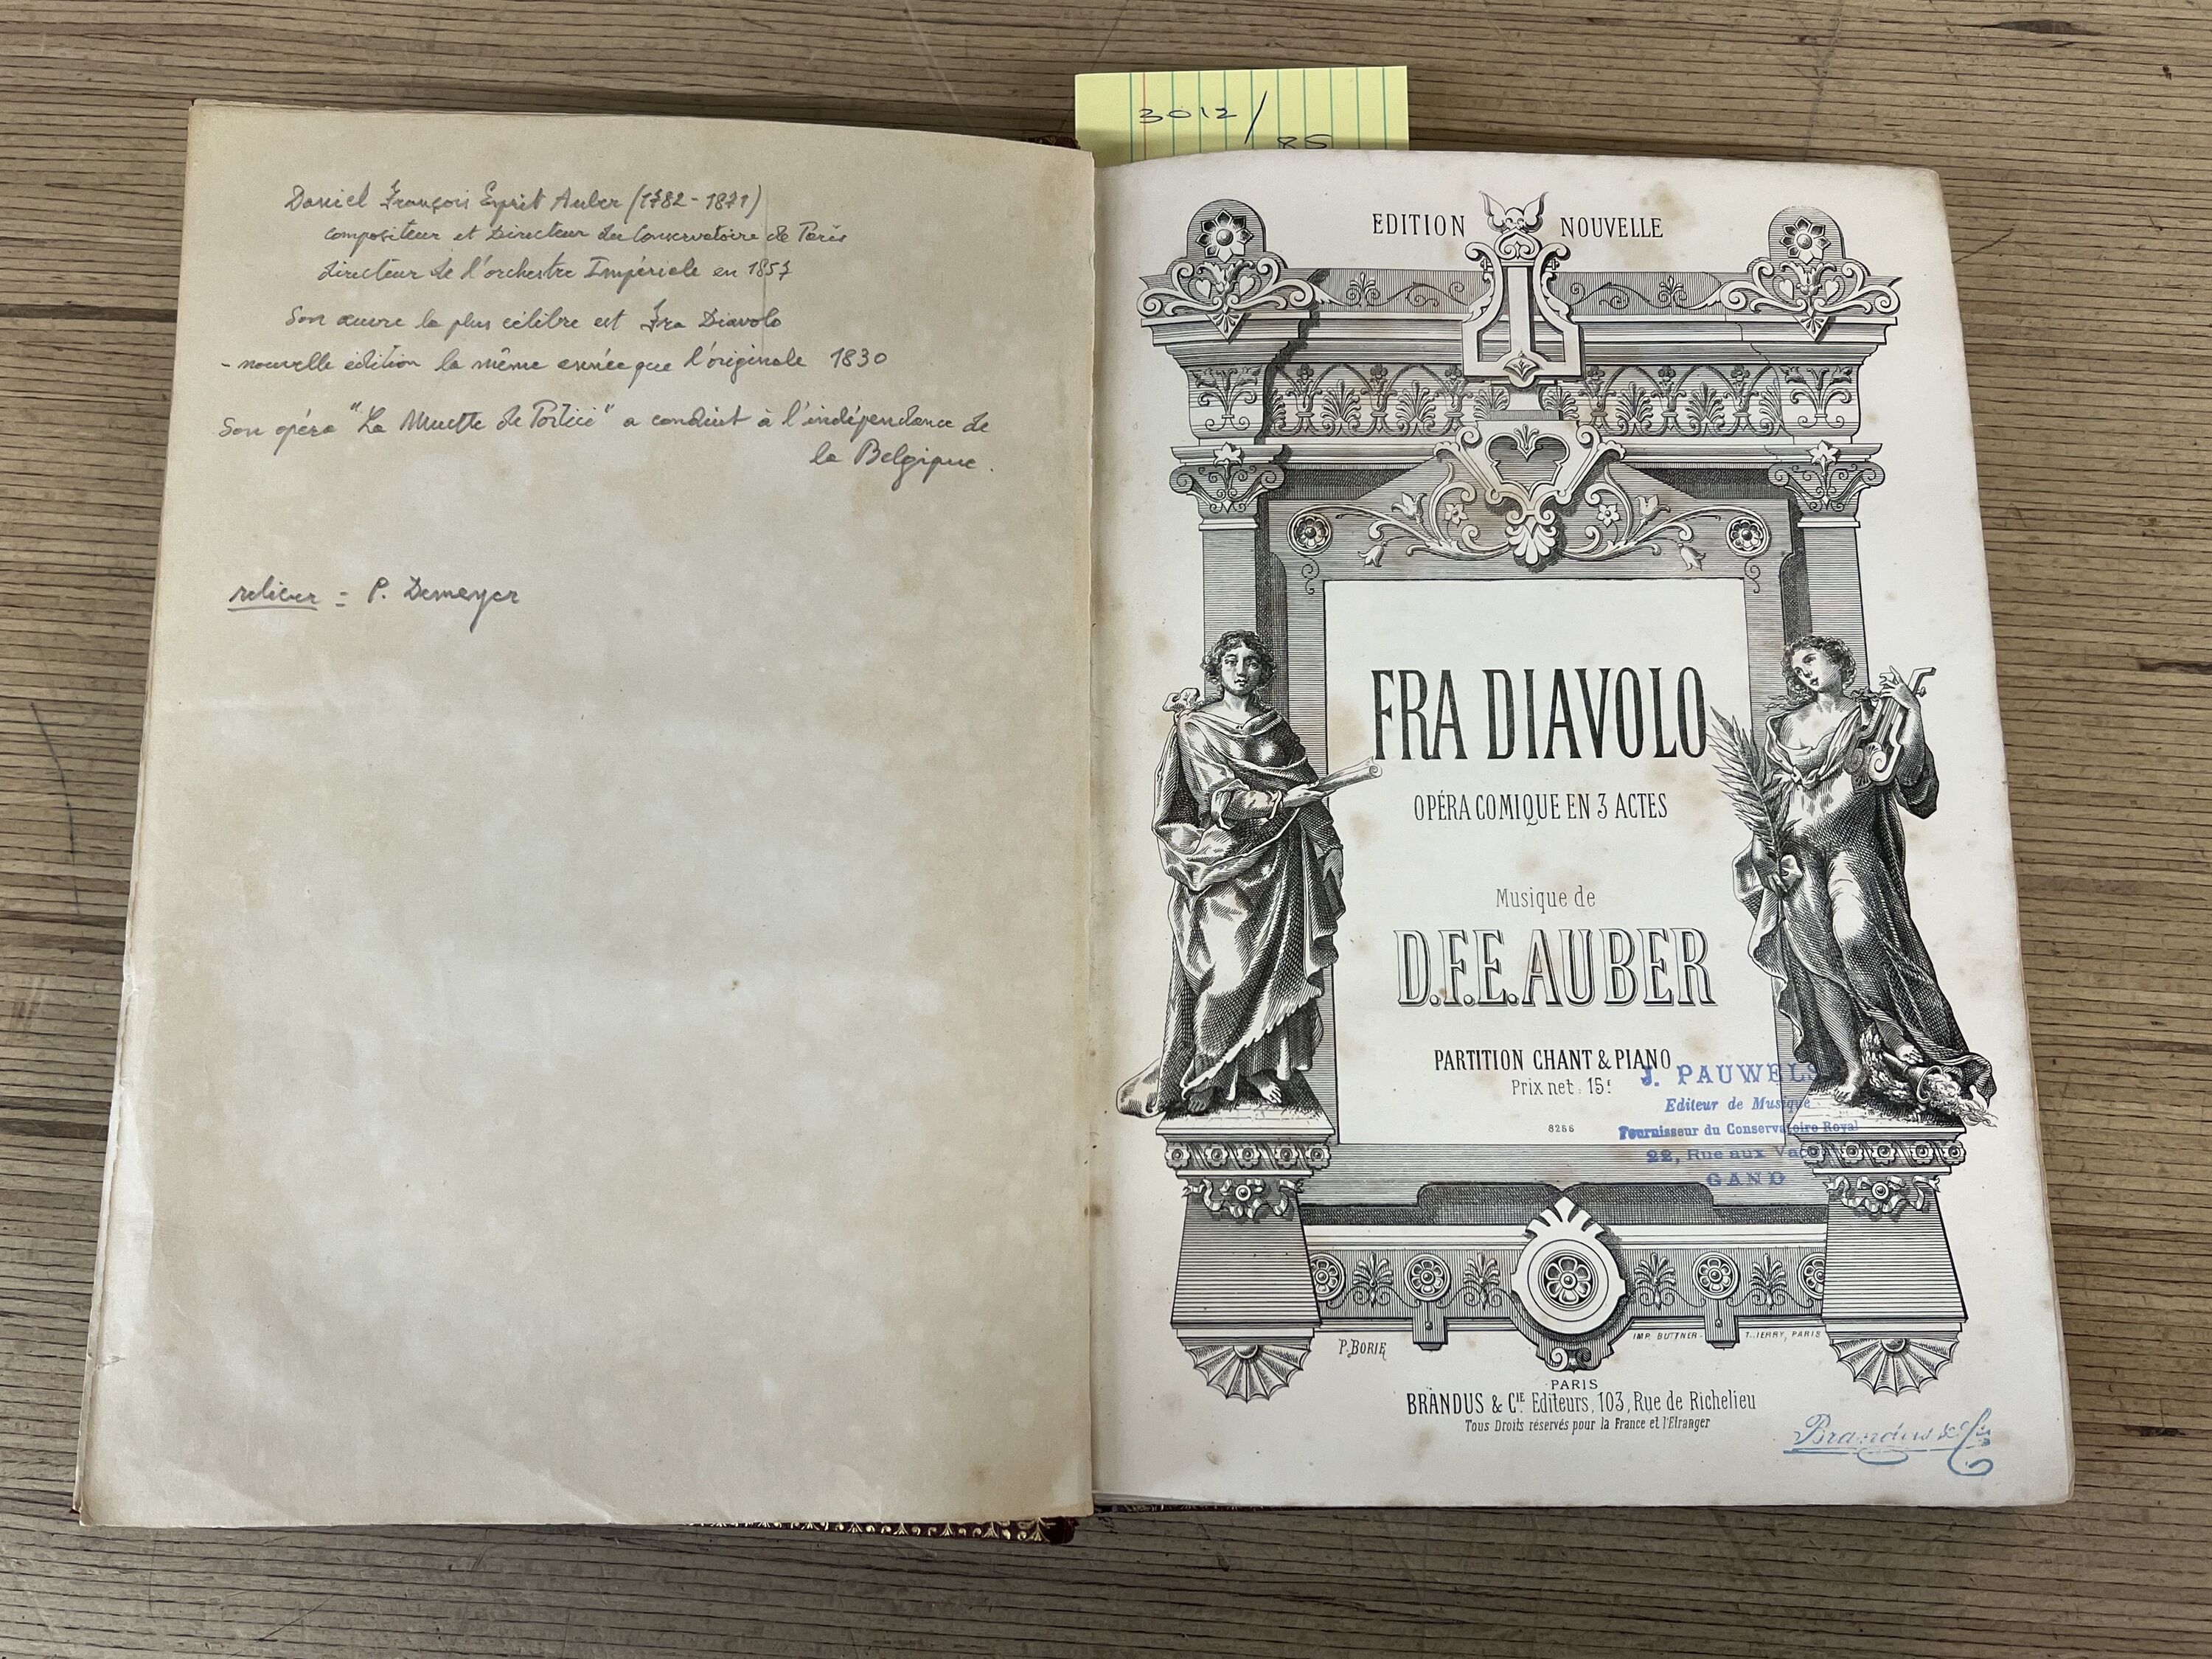 3012/
85
Daniel François Esprit Auber (1782-1871)
compositeur et Directeur du Conservatoire de Paris
directeur de l'orchestre Impériale en 1857
Son œuvre la plus célèbre est Fra Diavolo
- nouvelle édition la même année que l'originale 1830
Son opéra "La Muette de Portici" a conduit à l'indépendance de
la Belgique.
relieur = P. Demeyer
EDITION NOUVELLE
FRA DIAVOLO
OPÉRA COMIQUE EN 3 ACTES
Musique de
D.F.E. AUBER
PARTITION CHANT & PIANO
Prix net: 15f
8266
J. PAUWELS
Editeur de Musique
Fournisseur du Conservatoire Royal
22, Rue aux
GAND
P. BORIE
IMP. BUTTNER-THIERRY, PARIS
PARIS
BRANDUS & CIE. Editeurs, 103, Rue de Richelieu
Tous Droits réservés pour la France et l'Etranger
Brandus & Cie